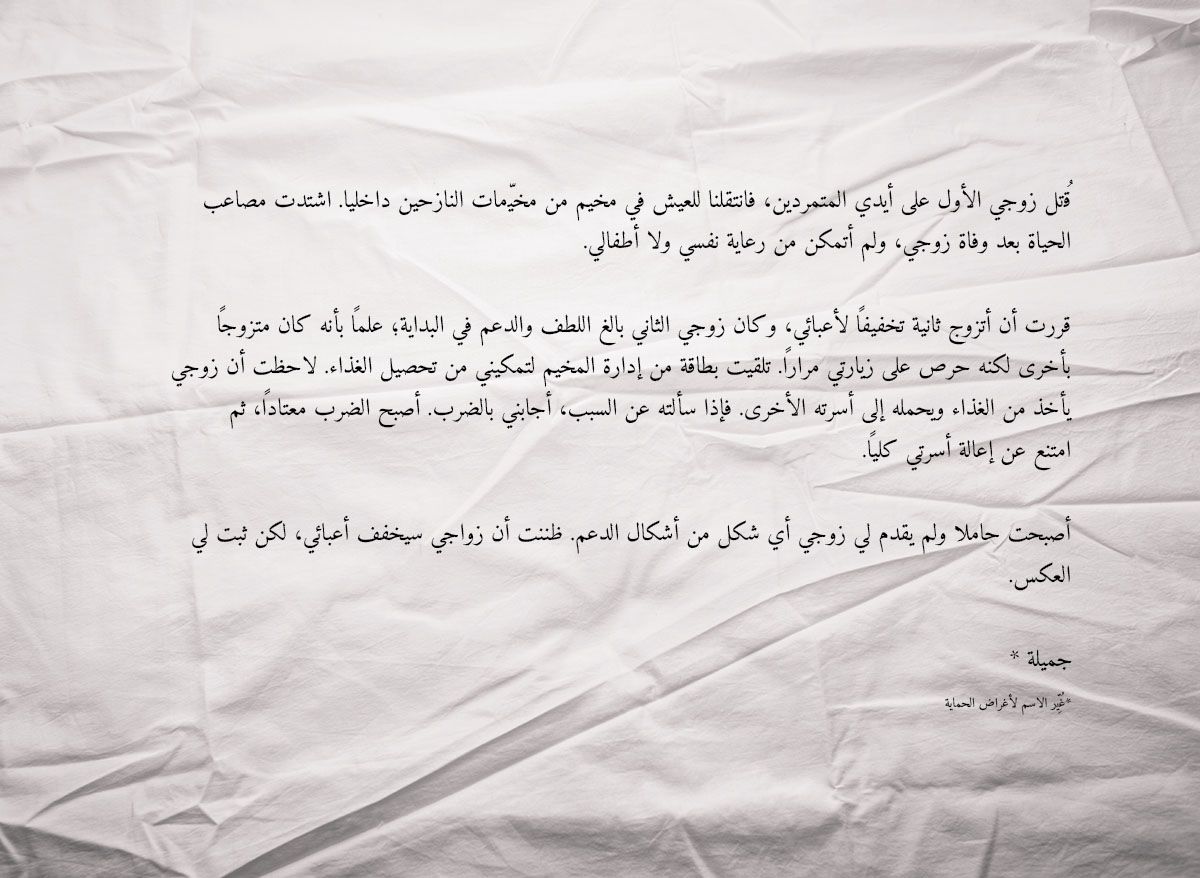 قُتل زوجي الأول على أيدي المتمردين، فانتقلنا للعيش في مخيم من مخيّمات النازحين داخليا. اشتدت مصاعب
الحياة بعد وفاة زوجي، ولم أتمكن من رعاية نفسي ولا أطفالي.
قررت أن أتزوج ثانية تخفيفًا لأعبائي، وكان زوجي الثاني بالغ اللطف والدعم في البداية؛ علمًا بأنه كان متزوجاً
بأخرى لكنه حرص على زيارتي مراراً. تلقيت بطاقة من إدارة المخيم لتمكيني من تحصيل الغذاء. لاحظت أن زوجي
يأخذ من الغذاء ويحمله إلى أسرته الأخرى. فإذا سألته عن السبب، أجابني بالضرب. أصبح الضرب معتاداً، ثم
امتنع عن إعالة أسرتي كلياً.
أصبحت حاملا ولم يقدم لي زوجي أي شكل من أشكال الدعم. ظننت أن زواجي سيخفف أعبائي، لكن ثبت لي
العكس.
جميلة *
*غُيِّر الاسم لأغراض الحماية